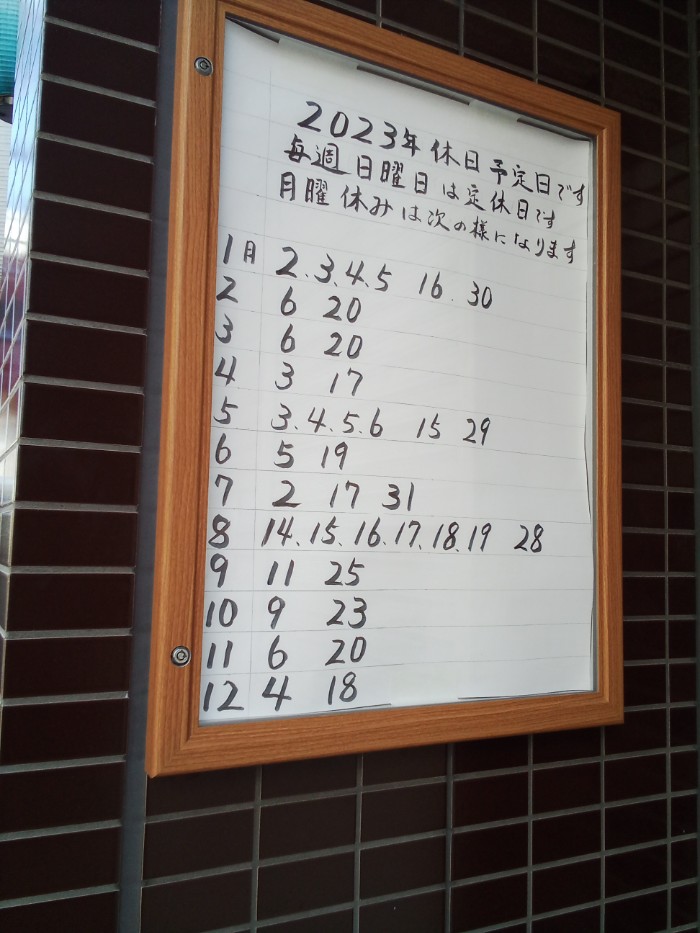 2023年休日予定日です
毎週日曜日は定休日です
月曜休みは次の様になります
1月 2.3.4.5 16.30
2 6 20
3 6 20
4 3 17
5 3.4.5.6 15 29
6 5 19
7 2 17 31
8 14.15.16.17.18.19 28
9 11 25
10 9 23
11 6 20
12 4 18